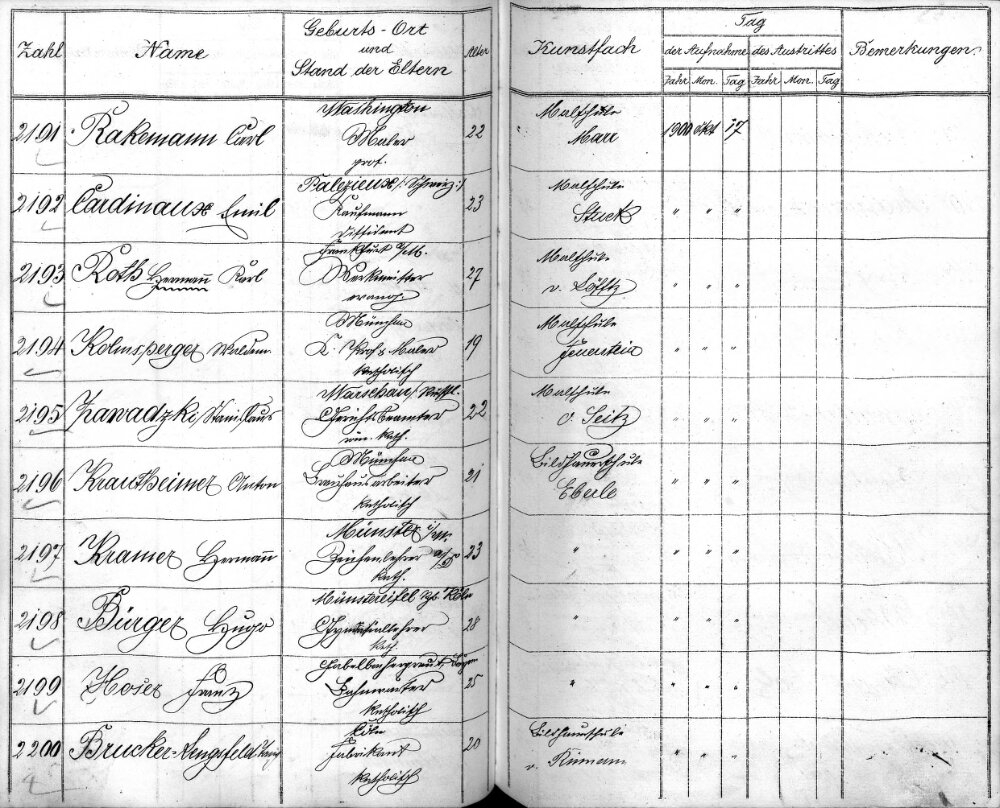 Zahl Name Geburts-Ort und Stand der Eltern Alter Kunstfach Tag der Aufnahme des Austrittes Bemerkungen.
Jahr Mon. Tag Jahr Mon. Tag
2191 Rakemann Carl Washington 22 Malschule 1900 Okt 17
Maler Marr
prot.
2192 Cardinaux Emil Palezieux /: Schweiz :/ 23 Malschule " " "
Kaufmann Stuck
Dissident
2193 Roth Hermann Karl Frankfurt 27 Malschule " " "
Werkmeister v. Löfftz
evang.
2194 Kolmsperger Waldem. München 19 Malschule " " "
K. Prof. Maler Feuerstein
katholisch
2195 Zawadzki Stanislaus Warschau / Russl. 22 Malschule " " "
Gerichtsbeamter v. Seitz
röm. kath.
2196 Krautheimer Anton München 21 Bildhauerschule " " "
Brauhausarbeiter Eberle
katholisch
2197 Kramer Hermann Münster i/W. 23 " " " "
Zeichenlehrer a/D
kath.
2198 Bürger Hugo Münstereifel Köln 28 " " " "
Gymnasiallehrer
kath.
2199 Hoser Franz 25 " " " "
Bahnwärter
katholisch
2200 Brucker- Köln 20 Bildhauerschule " " "
Fabrikant v. Rümann
katholisch